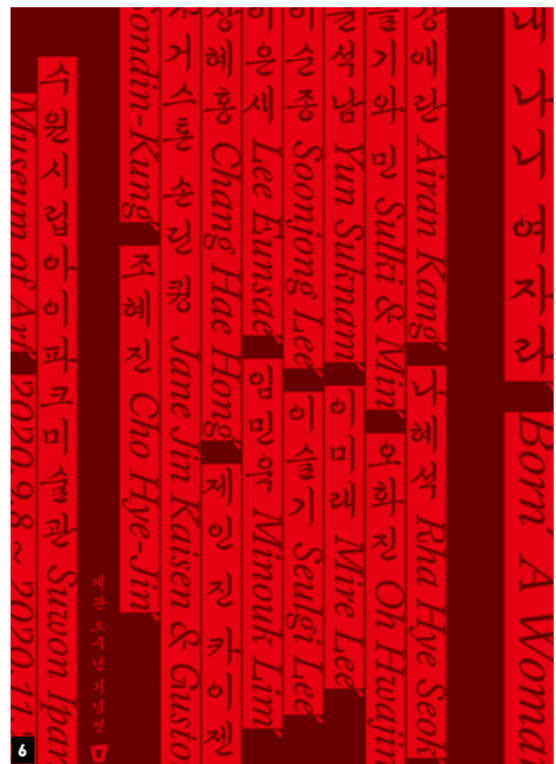 내 나니 여자라 Born A Woman
강애란 Airan Kang 나혜석 Rha Hye Seok
슬기와 민 Sulki & Min 오화진 Oh Hwajin
윤석남 Yun Suknam 이미래 Mire Lee
이순종 Soonjong Lee 이슬기 Seulgi Lee
이은새 Lee Eunsae 임민욱 Minouk Lim
장혜홍 Chang Hae Hong 제인 진 카이젠
거스톤 손딘 퀑 Jane Jin Kaisen & Gusto
ondin-Kung 조혜진 Cho Hye-Jin
개관 오주년 기념전
수원시립아이파크미술관 Suwon Ipar
Museum of Art 2020.9.8 ~ 2020.11.
6